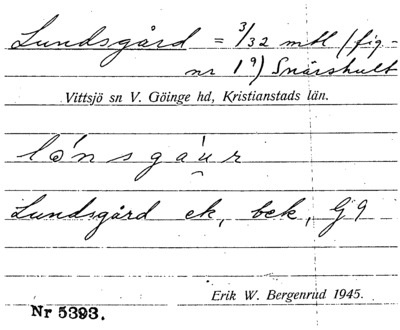 Lundsgård = 3/32 mtl (fig-
nr 1⁹) Snärshult
Vittsjö sn V. Göinge hd, Kristianstads län.
lǿnsga'u̯r
Lundsgård ek, bek, G9
Erik W. Bergenrud 1945.
Nr 5393.